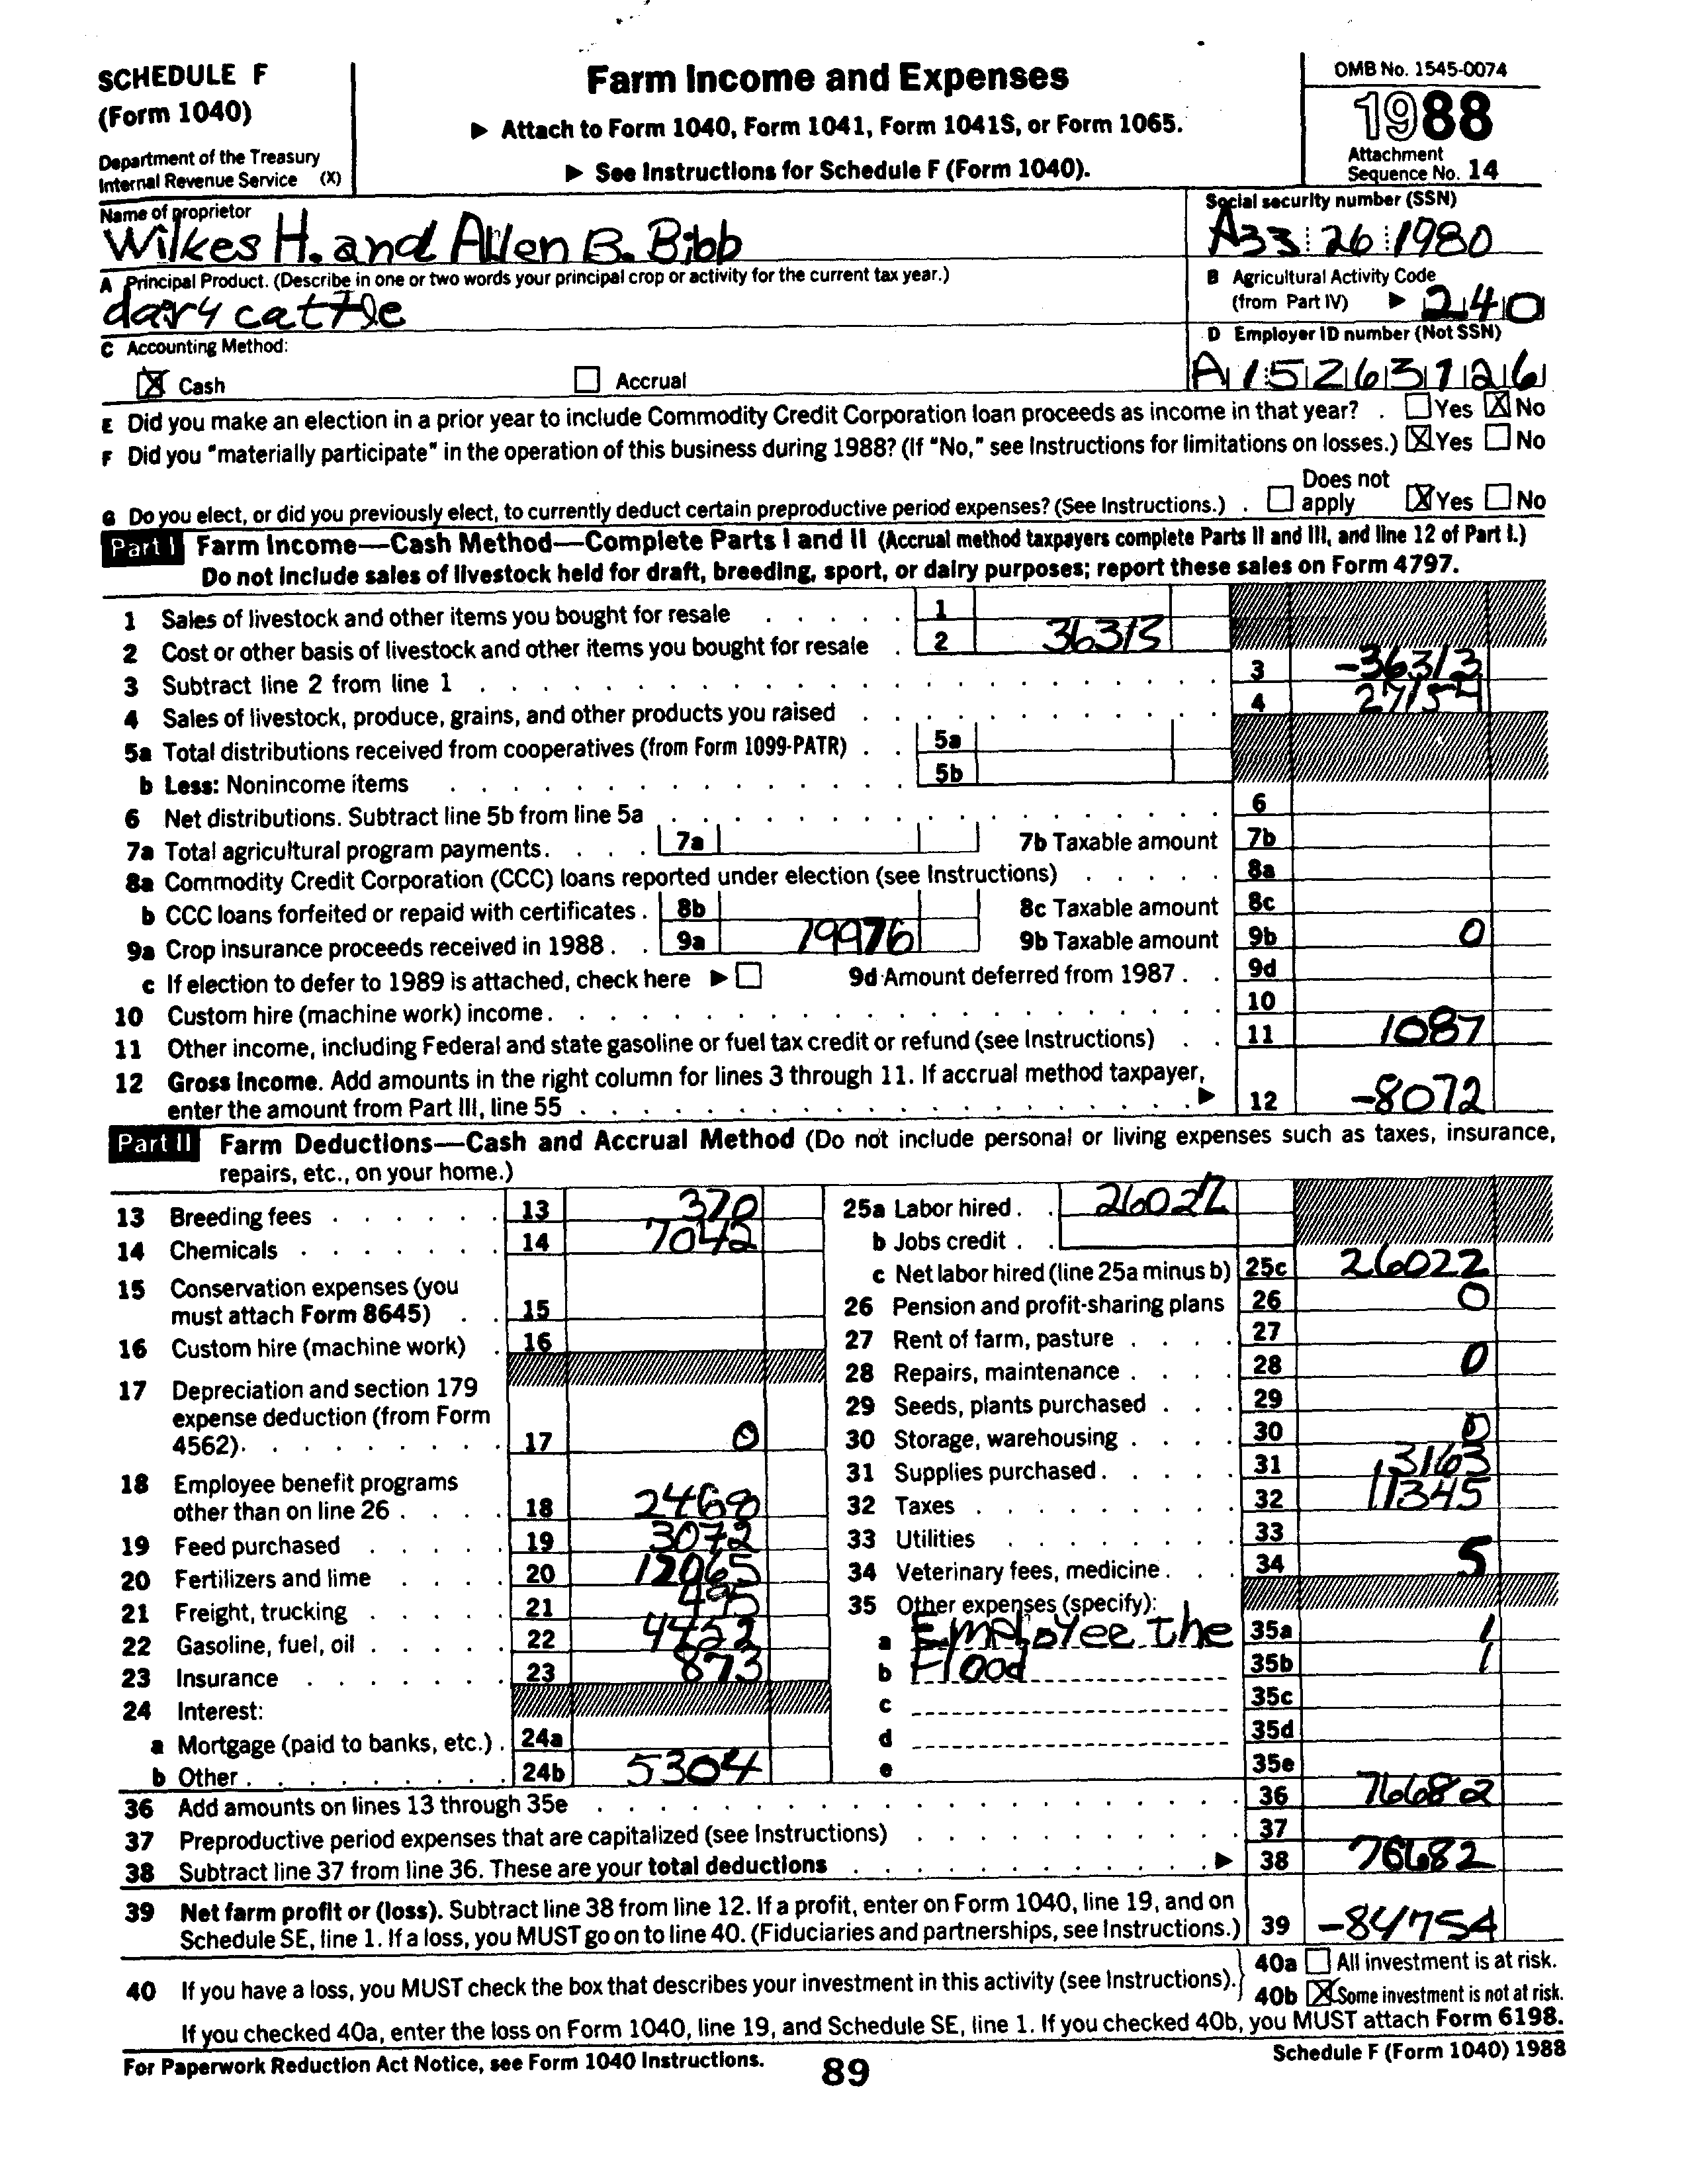 SCHEDULE F
(Form 1040)
Department of the Treasury
Internal Revenue Service (X)
Farm Income and Expenses
▶ Attach to Form 1040, Form 1041, Form 1041S, or Form 1065.
▶ See Instructions for Schedule F (Form 1040).
OMB No. 1545-0074
1988
Attachment
Sequence No. 14
Name of proprietor
Wilkes H. and Allen B. Bibb
Social security number (SSN)
A33 26 1980
A Principal Product. (Describe in one or two words your principal crop or activity for the current tax year.)
dary cattle
B Agricultural Activity Code
(from Part IV) ▶ 240
C Accounting Method:
Cash Accrual
D Employer ID number (Not SSN)
A15263726
E Did you make an election in a prior year to include Commodity Credit Corporation loan proceeds as income in that year? . Yes No
F Did you "materially participate" in the operation of this business during 1988? (If "No," see Instructions for limitations on losses.) Yes No
G Do you elect, or did you previously elect, to currently deduct certain preproductive period expenses? (See Instructions.) . Does not apply Yes No
Part I Farm Income—Cash Method—Complete Parts I and II (Accrual method taxpayers complete Parts II and III, and line 12 of Part I.)
Do not include sales of livestock held for draft, breeding, sport, or dairy purposes; report these sales on Form 4797.
1 Sales of livestock and other items you bought for resale 1
2 Cost or other basis of livestock and other items you bought for resale 2 36313
3 Subtract line 2 from line 1 3 -36313
4 Sales of livestock, produce, grains, and other products you raised 4 27154
5a Total distributions received from cooperatives (from Form 1099-PATR) 5a
b Less: Nonincome items 5b
6 Net distributions. Subtract line 5b from line 5a 6
7a Total agricultural program payments. 7a 7b Taxable amount 7b
8a Commodity Credit Corporation (CCC) loans reported under election (see Instructions) 8a
b CCC loans forfeited or repaid with certificates . 8b 8c Taxable amount 8c
9a Crop insurance proceeds received in 1988 . 9a 79976 9b Taxable amount 9b 0
c If election to defer to 1989 is attached, check here ▶ 9d Amount deferred from 1987 . 9d
10 Custom hire (machine work) income. 10
11 Other income, including Federal and state gasoline or fuel tax credit or refund (see Instructions) 11 1087
12 Gross Income. Add amounts in the right column for lines 3 through 11. If accrual method taxpayer,
enter the amount from Part III, line 55 ▶ 12 -8072
Part II Farm Deductions—Cash and Accrual Method (Do not include personal or living expenses such as taxes, insurance,
repairs, etc., on your home.)
13 Breeding fees 13 370
14 Chemicals 14 7042
15 Conservation expenses (you
must attach Form 8645) 15
16 Custom hire (machine work) 16
17 Depreciation and section 179
expense deduction (from Form
4562). 17 0
18 Employee benefit programs
other than on line 26 . 18 2468
19 Feed purchased 19 3072
20 Fertilizers and lime 20 12065
21 Freight, trucking 21 495
22 Gasoline, fuel, oil 22
23 Insurance 23 873
24 Interest:
a Mortgage (paid to banks, etc.) . 24a
b Other 24b 5304
25a Labor hired . 26022
b Jobs credit .
c Net labor hired (line 25a minus b) 25c 26022
26 Pension and profit-sharing plans 26 0
27 Rent of farm, pasture 27
28 Repairs, maintenance 28 0
29 Seeds, plants purchased 29
30 Storage, warehousing 30 0
31 Supplies purchased 31 3163
32 Taxes 32 11345
33 Utilities 33
34 Veterinary fees, medicine . 34 5
35 Other expenses (specify):
a Employee the 35a 1
b Flood 35b 1
c 35c
d 35d
e 35e
36 Add amounts on lines 13 through 35e 36 76682
37 Preproductive period expenses that are capitalized (see Instructions) 37
38 Subtract line 37 from line 36. These are your total deductions ▶ 38 76682
39 Net farm profit or (loss). Subtract line 38 from line 12. If a profit, enter on Form 1040, line 19, and on
Schedule SE, line 1. If a loss, you MUST go on to line 40. (Fiduciaries and partnerships, see Instructions.) 39 -84754
40 If you have a loss, you MUST check the box that describes your investment in this activity (see Instructions). 40a All investment is at risk.
40b Some investment is not at risk.
If you checked 40a, enter the loss on Form 1040, line 19, and Schedule SE, line 1. If you checked 40b, you MUST attach Form 6198.
For Paperwork Reduction Act Notice, see Form 1040 Instructions.
89
Schedule F (Form 1040) 1988